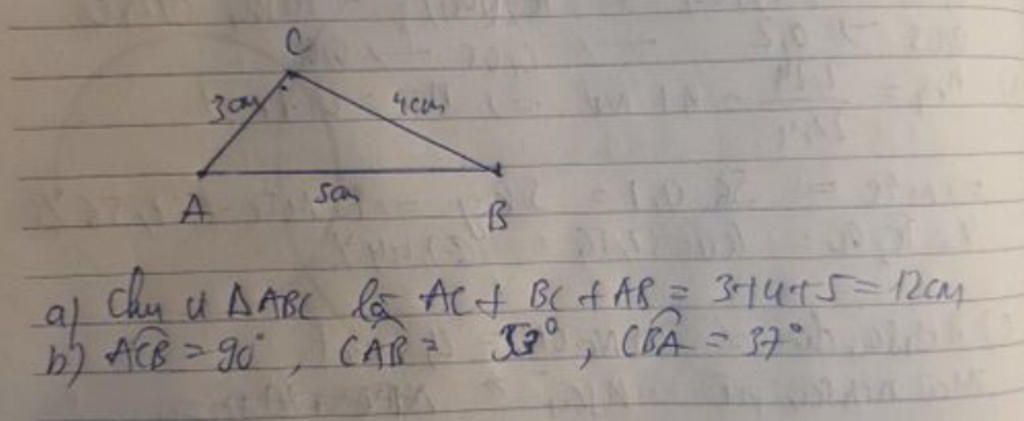 C
3cm
4cm
A
5cm
B
a) Chu vi ΔABC là AC + BC + AB = 3+4+5 = 12cm
b) ACB = 90°, CAB = 53°, CBA = 37°